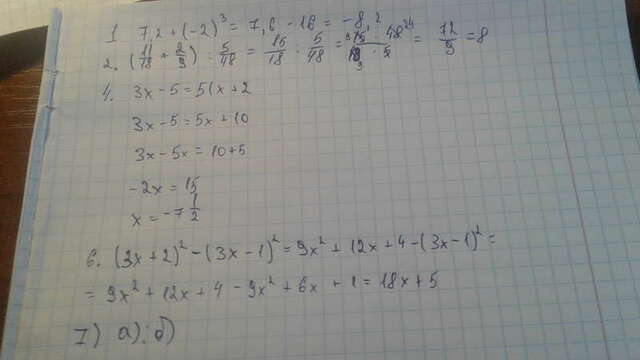 1 7,2 + (-2)³ = 7,6 - 16 = -8,2
2. (11/18 + 2/9) · 5/48 = 15/18 · 5/48 = = 12/9 = 8
4. 3x - 5 = 5(x + 2
3x - 5 = 5x + 10
3x - 5x = 10 + 5
-2x = 15
x = -7 1/2
6. (3x + 2)² - (3x - 1)² = 9x² + 12x + 4 - (3x - 1)² =
= 9x² + 12x + 4 - 9x² + 6x + 1 = 18x + 5
I) а); б)